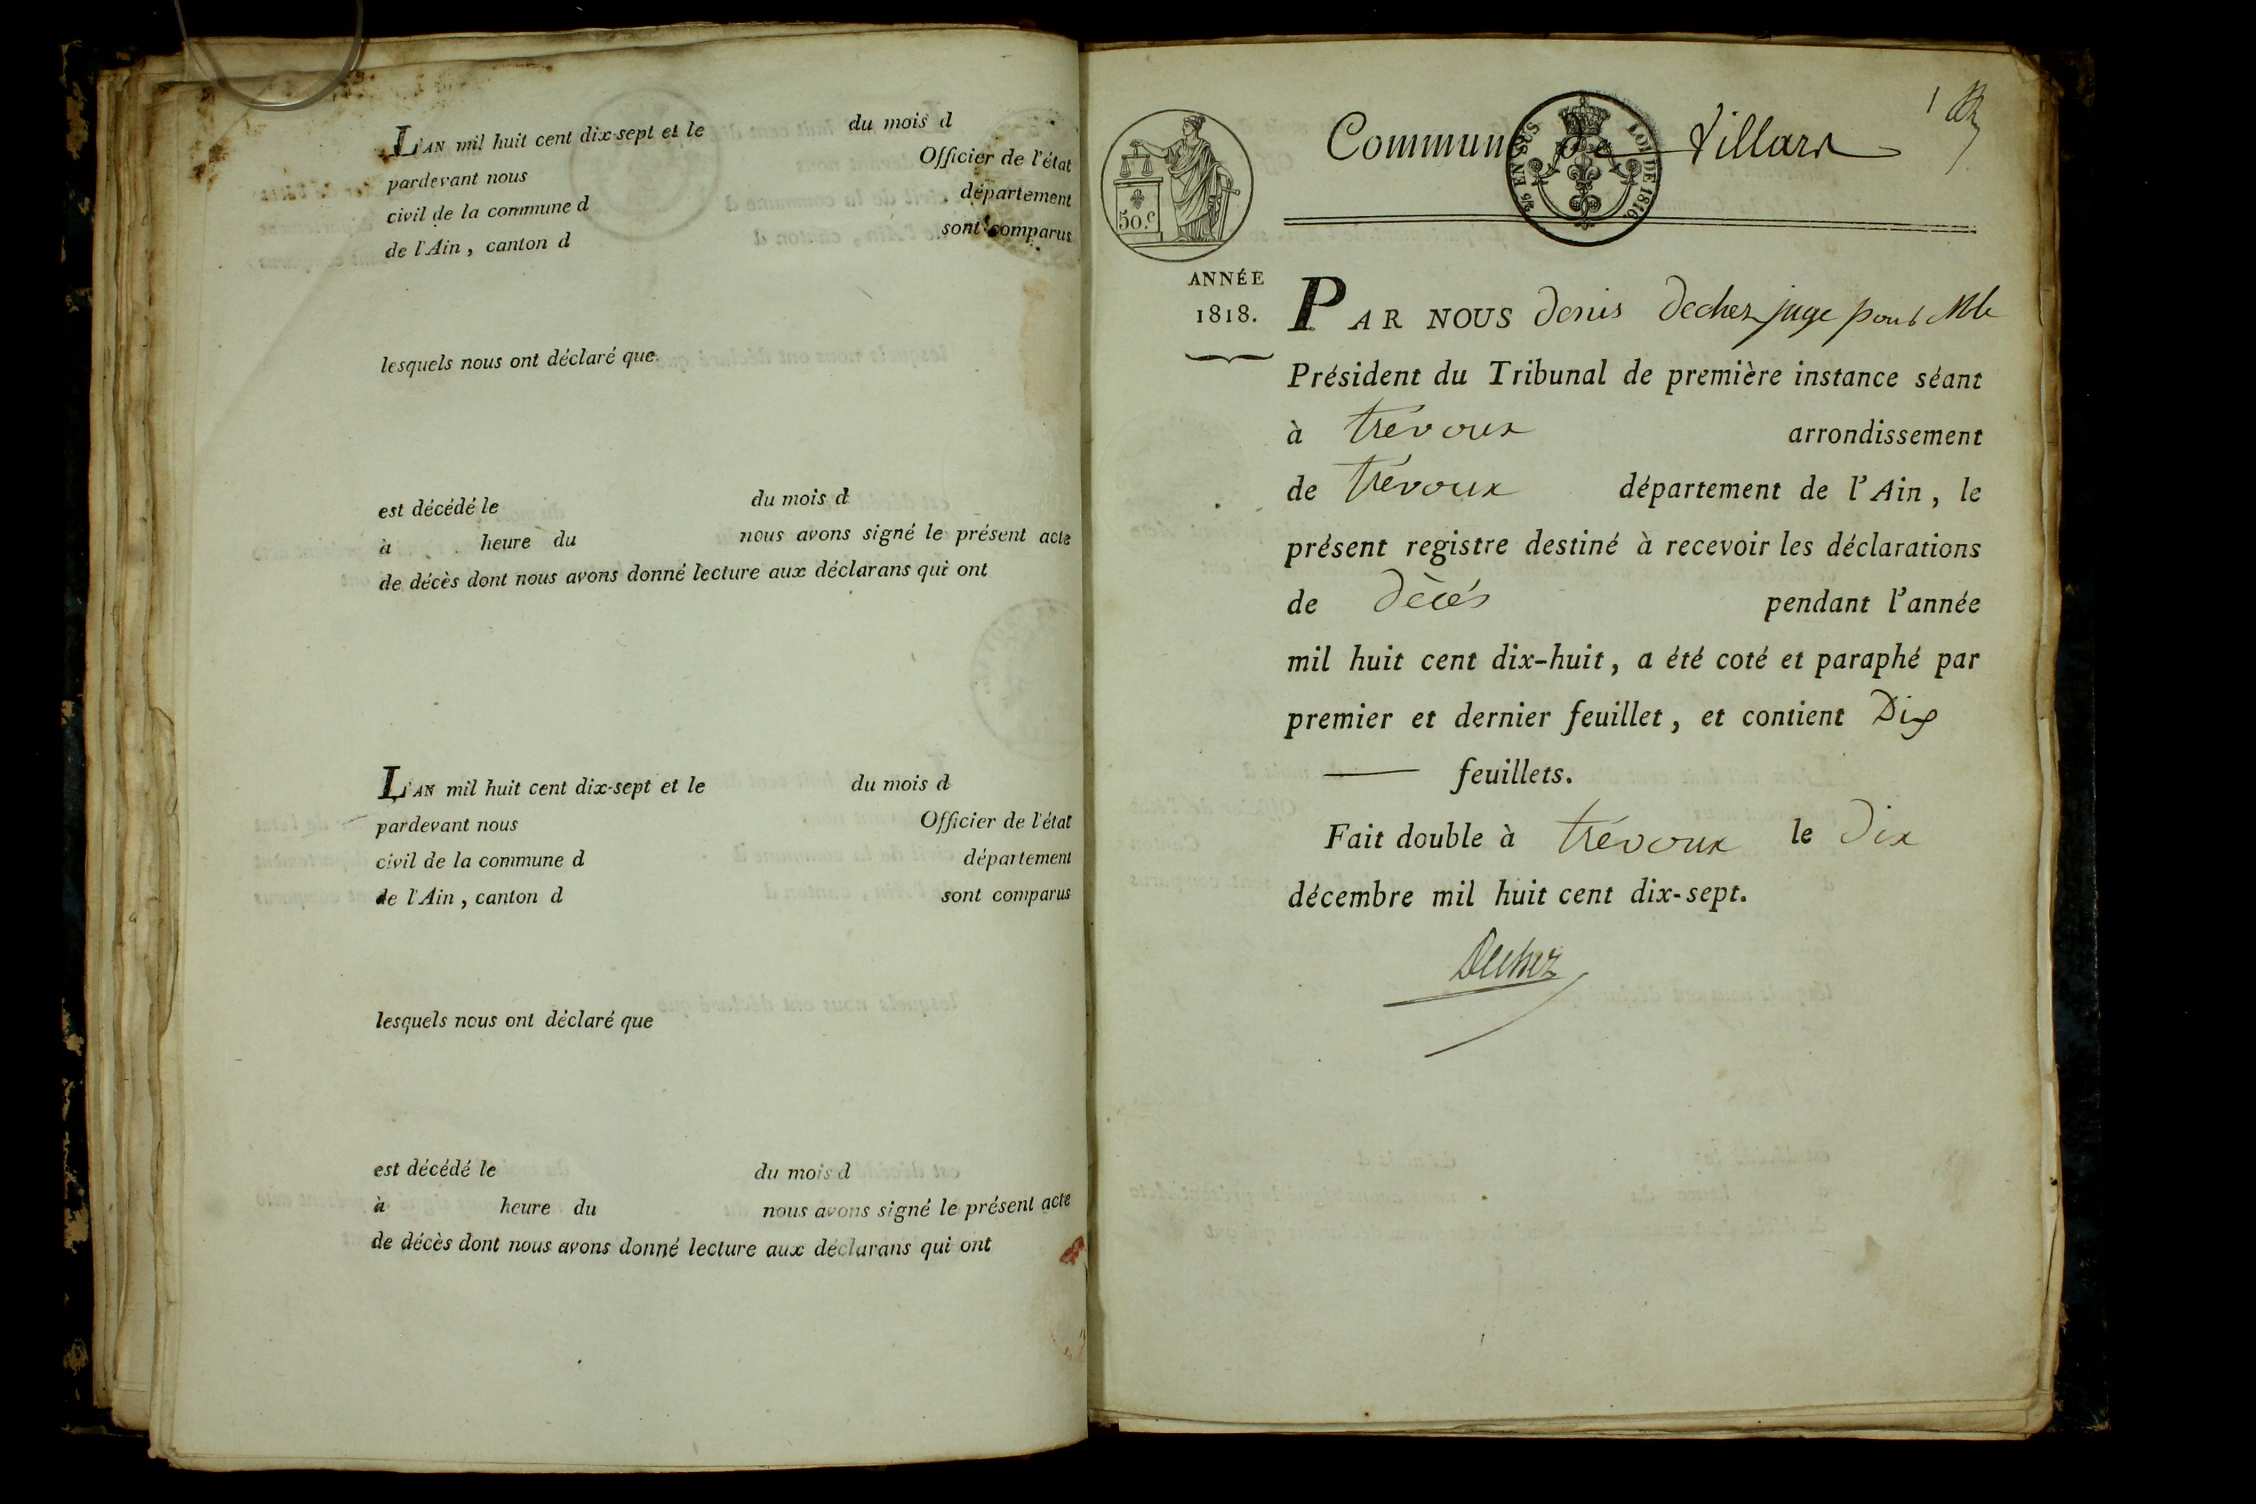 L'AN mil huit cent dix-sept et le du mois d
pardevant nous Officier de l'état
civil de la commune d département
de l'Ain, canton d sont comparus
lesquels nous ont déclaré que
est décédé le du mois d
à heure du nous avons signé le présent acte
de décès dont nous avons donné lecture aux déclarans qui ont
L'AN mil huit cent dix-sept et le du mois d
pardevant nous Officier de l'état
civil de la commune d département
de l'Ain, canton d sont comparus
lesquels nous ont déclaré que
est décédé le du mois d
à heure du nous avons signé le présent acte
de décès dont nous avons donné lecture aux déclarans qui ont
1
Commune de Villars
EN SUS LOI DE 1816
50 c
ANNÉE
1818.
PAR NOUS Denis Dechez juge pour Mr le
Président du Tribunal de première instance séant
à trévoux arrondissement
de trévoux département de l'Ain, le
présent registre destiné à recevoir les déclarations
de Décés pendant l'année
mil huit cent dix-huit, a été coté et paraphé par
premier et dernier feuillet, et contient Dix
feuillets.
Fait double à trévoux le Dix
décembre mil huit cent dix-sept.
Dechez